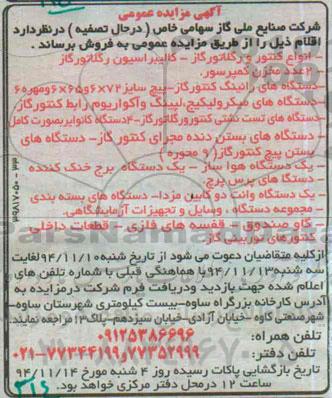 آگهی مزایده عمومی
شرکت صنایع ملی گاز سهامی خاص (درحال تصفیه) درنظردارد
اقلام ذیل را از طریق مزایده عمومی به فروش برساند.
- انواع کنتور و رگلاتورگاز - کالیبراسیون رگلاتورگاز
- ۲عدد مخزن کمپرسور.
دستگاه های رانینگ کنتورگاز-پیچ سایز ۷۲×۶و۶۵×۶ومهره۶
دستگاه های میکرولیکیج-لیپینگ وآکواریوم رابط کنتورگاز
دستگاههای تست نشتی کنتورورگلاتورگاز-۴دستگاه کانوایربصورت کامل
-دستگاه های بستر دنده مجرای کنتور گاز- دستگاه های
بستن پیچ کنتورگاز(۹ محوره)
- یک دستگاه هوا ساز - یک دستگاه برج خنک کننده
- دستگا های پرس پرچ
- یک دستگاه وانت دو کابین مزدا- دستگاه های بسته بندی
- مجموعه دستگاه ، وسایل و تجهیزات آزمایشگاهی.
- گاو صندوق - قفسه های فلزی - قطعات داخلی
کنتور های توربینی گاز
ازکلیه متقاضیان دعوت می شود از تاریخ شنبه۹۴/۱۱/۱۰لغایت
سه شنبه۹۴/۱۱/۱۳با هماهنگی قبلی با شماره تلفن های
اعلام شده جهت بازدید ودریافت فرم شرکت درمزایده به
آدرس کارخانه بزرگراه ساوه-بیست کیلومتری شهرستان ساوه-
شهرصنعتی کاوه-خیابان آزادی-خیابان سیزدهم-پلاک۱۳ مراجعه نمایند.
تلفن همراه: ۰۹۱۲۵۳۸۶۶۹۶
تلفن دفتر: ۷۷۳۵۲۹۹۹و۷۷۳۴۴۱۹۹-۰۲۱
تاریخ بازگشایی پاکات رسیده روز ۴ شنبه مورخ ۹۴/۱۱/۱۴
ساعت ۱۲ درمحل دفتر مرکزی خواهد بود.